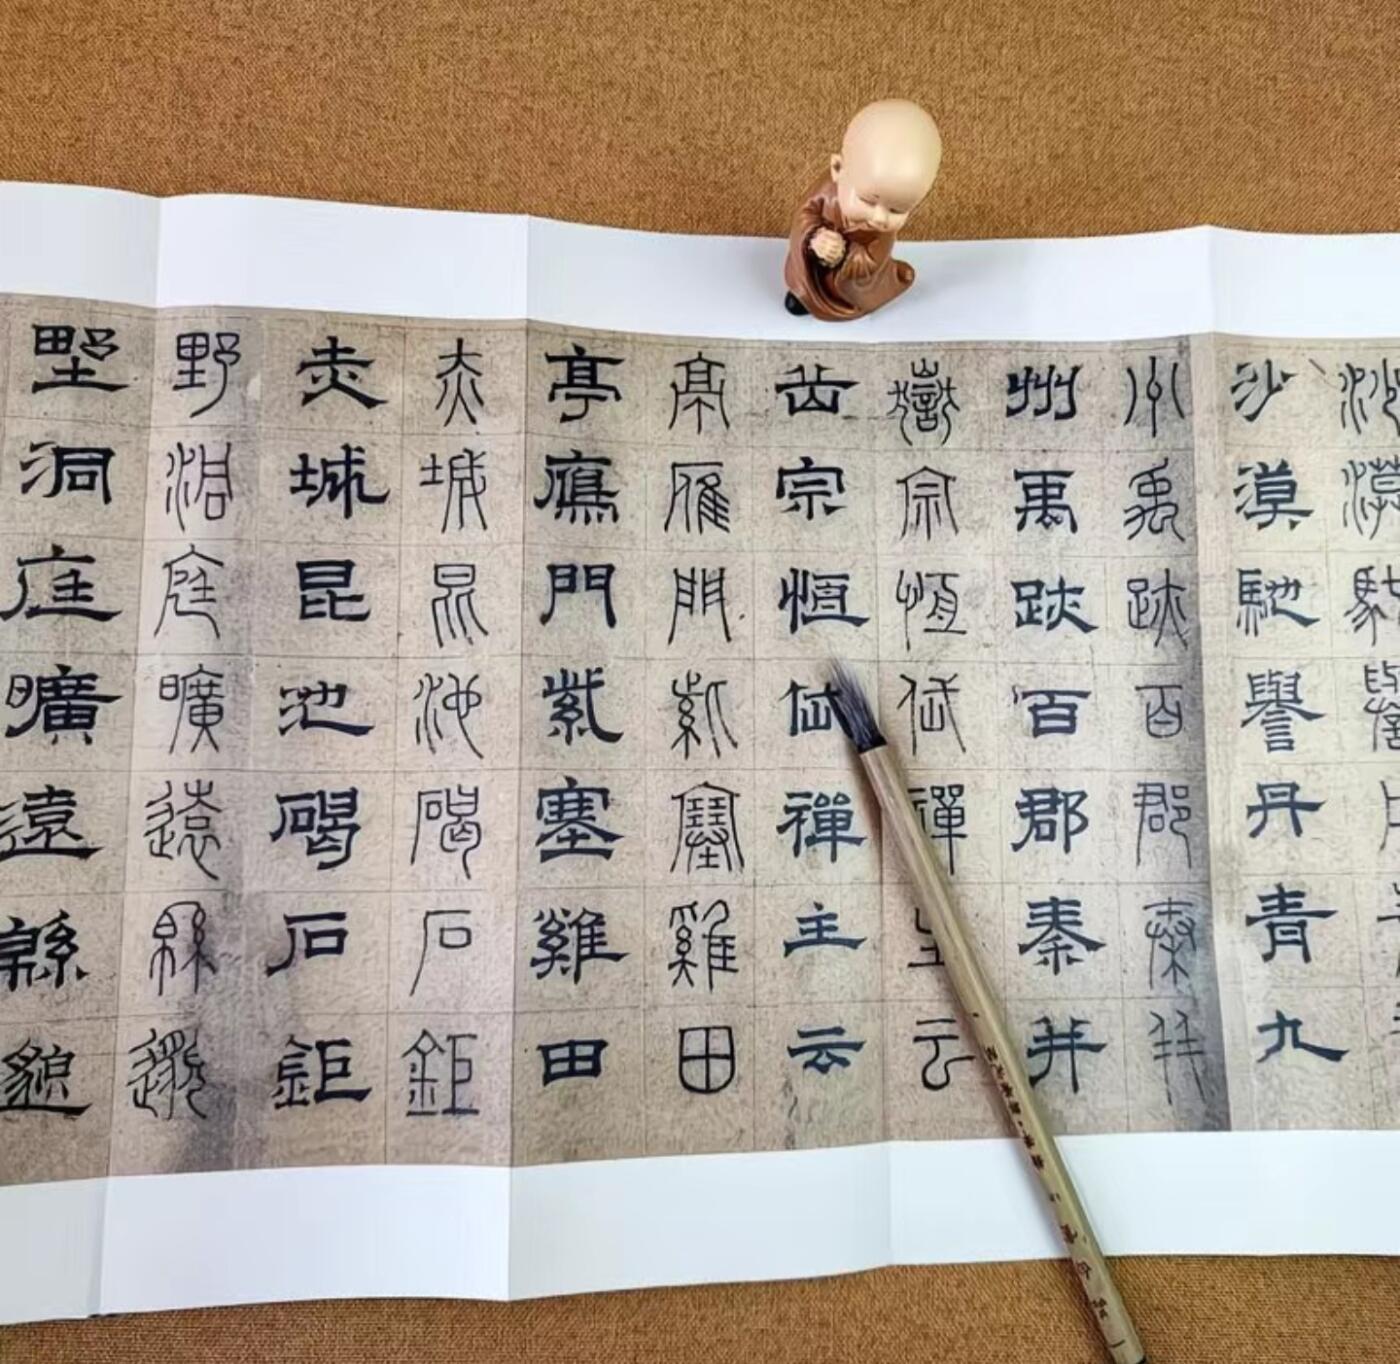 沙漠馳
沙漠馳譽丹青九
州禹跡百郡秦并
州禹跡百郡秦并
嶽宗恆岱禪主云
岳宗恆岱禪主云
亭雁門紫塞雞田
亭鴈門紫塞雞田
赤城昆池碣石鉅
赤城昆池碣石鉅
野洞庭曠遠緜邈
野洞庭曠遠緜邈